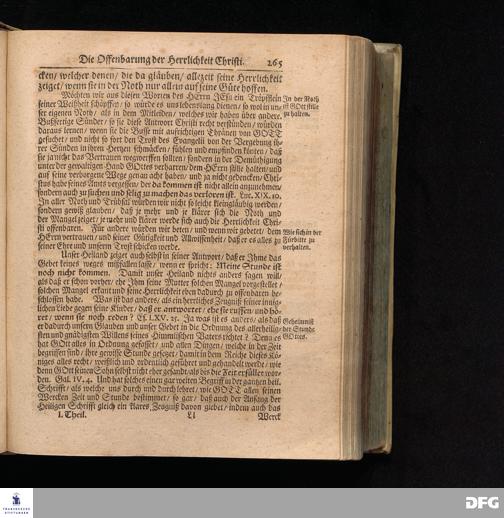 Die Offenbarung der Herrlichkeit Christi. 265
cken/ welcher denen/ die da gläuben/ allezeit seine Herrlichkeit
zeiget/ wenn sie in der Noth nur allein auf seine Güte hoffen.
Möchten wir aus diesen Worten des HErrn JEsu ein Tröpfflein
seiner Weißheit schöpffen/ so würde es uns lebenslang dienen/ so wol in un-
ser eigenen Noth/ als in dem Mitleiden/ welches wir haben über andere.
Bußfertige Sünder/ so sie diese Antwort Christi recht verstünden/ würden
daraus lernen/ wenn sie die Busse mit aufrichtigen Thränen von GOTT
gesuchet/ und nicht so fort den Trost des Evangelii von der Vergebung ih-
rer Sünden in ihren Hertzen schmäcken/ fühlen und empfinden könten/ daß
sie ja nicht das Vertrauen wegwerffen sollten/ sondern in der Demüthigung
unter der gewaltigen Hand GOttes verharren/ dem HErrn stille halten/ und
auf seine verborgene Wege genau acht haben/ und ja nicht gedencken/ Chri-
stus habe seines Amts vergessen/ der da kommen ist nicht allein anzunehmen/
sondern auch zu suchen und selig zu machen das verloren ist. Luc. XIX. 10.
In aller Noth und Trübsal würden wir nicht so leicht kleingläubig werden/
sondern gewiß glauben/ daß je mehr und je klärer sich die Noth und
der Mangel zeiget/ je mehr und klärer werde sich auch die Herrlichkeit Chri-
sti offenbaren. Für andere würden wir beten/ und wenn wir gebetet/ dem
HErrn vertrauen/ und seiner Gütigkeit und Allwissenheit/ daß er es alles zu
seiner Ehre und unserm Trost schicken werde.
Unser Heiland zeiget auch selbst in seiner Antwort/ daß er Ihme das
Gebet keines weges mißfallen lasse/ wenn er spricht: Meine Stunde ist
noch nicht kommen. Damit unser Heiland nichts anders sagen will/
als daß er schon vorher/ ehe Ihm seine Mutter solchen Mangel vorgestellet/
solchen Mangel erkant und seine Herrlichkeit eben dadurch zu offenbaren be-
schlossen habe. Was ist das anders/ als ein herrliches Zeugniß seiner innig-
lichen Liebe gegen seine Kinder/ daß er antwortet/ ehe sie ruffen/ und hö-
ret/ wenn sie noch reden? Es. LXV. 25. Ja was ist es anders/ als daß
er dadurch unsern Glauben und unser Gebet in die Ordnung des allerheilig-
sten und gnädigsten Willens seines Himmlischen Vaters richtet? Denn es
hat GOtt alles in Ordnung gefasset/ und allen Dingen/ welche in der Zeit
begriffen sind/ ihre gewisse Stunde gesetzet/ damit in dem Reiche dieses Kö-
niges alles recht/ weißlich und ordentlich geführet und gehandelt werde/ wie
denn GOtt seinen Sohn selbst nicht eher gesandt/ als bis die Zeit erfüllet wor-
den. Gal. IV. 4. Und hat solches einen gar weiten Begriff in der gantzen heil.
Schrifft/ als welche uns durch und durch lehret/ wie GOTT allen seinen
Wercken Zeit und Stunde bestimmet/ so gar/ daß auch der Anfang der
Heiligen Schrifft gleich ein klares Zeugniß davon giebet/ indem auch das
I. Theil. Ll Werck
In der Noth
ist GOtt stille
zu halten.
Wie sich in der
Fürbitte zu
verhalten.
Geheimniß
der Stunde
GOttes.
FRANCKESCHE
STIFTUNGEN
DFG